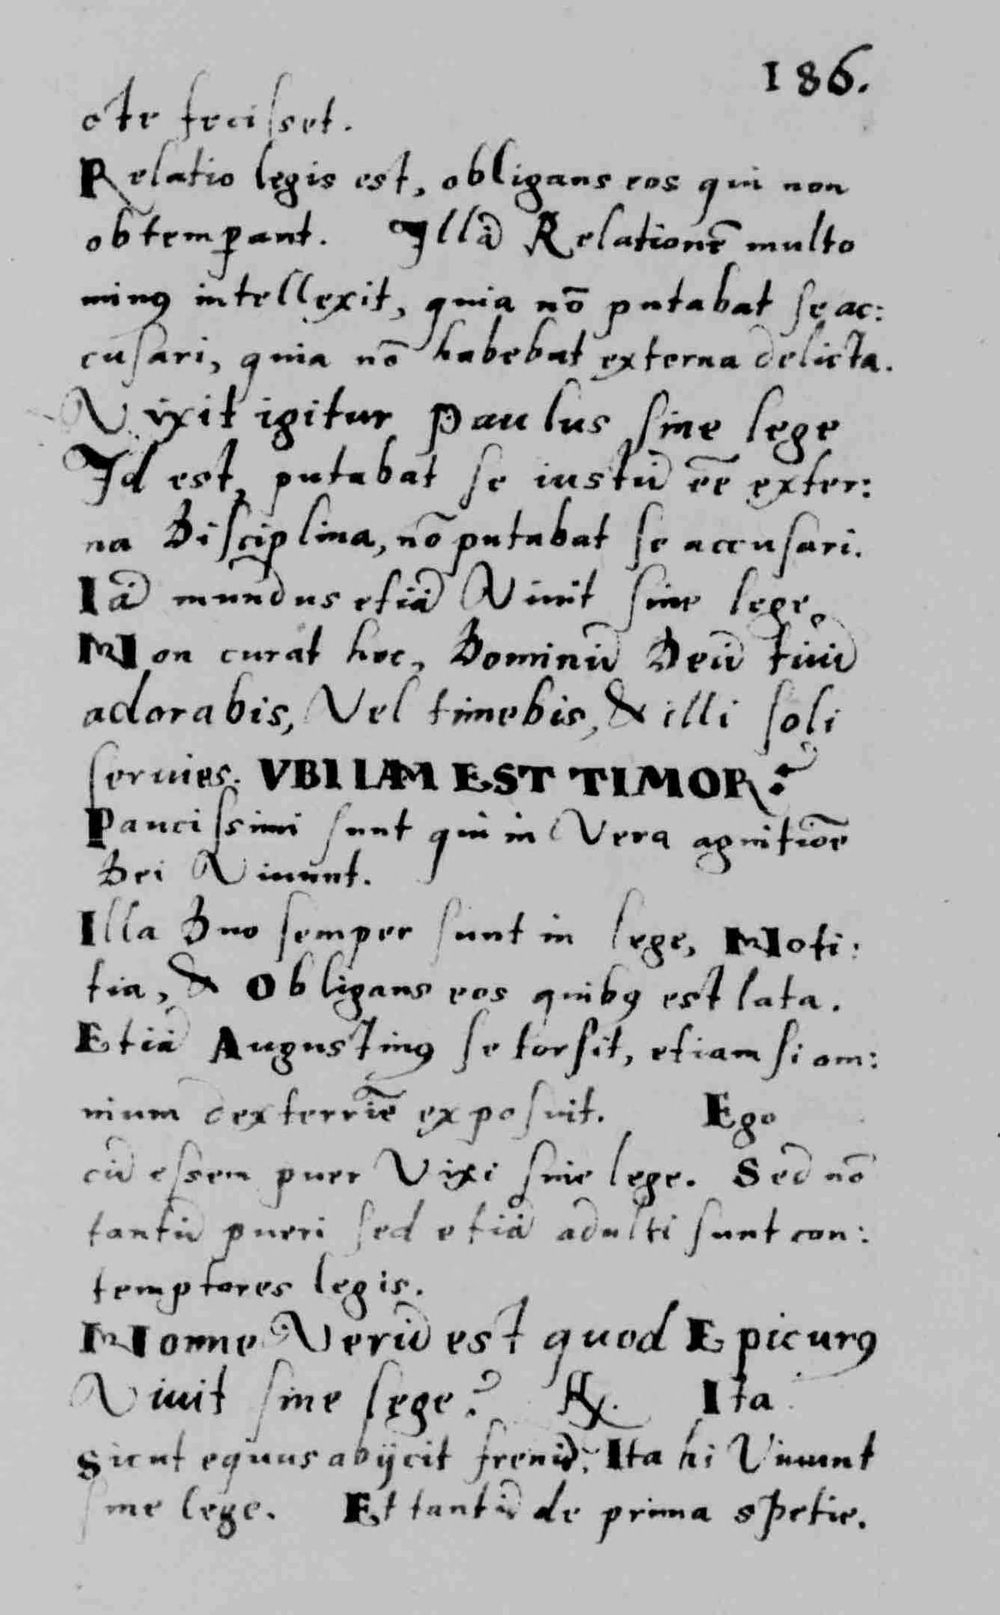 186.
cte fecisset.
Relatio legis est, obligans eos qui non
obtemꝑant. Illā Relationē multo
minꝰ intellexit, quia nō putabat se ac:
cusari, quia nō habebat externa delicta.
Vixit igitur Paulus sine lege
Id est, putabat se iustū eē exter:
na Disciplina, nō putabat se accusari.
Iā mundus etiā Viuit sine lege.
Non curat hoc, Dominū Deū tuū
adorabis, Vel timebis, & illi soli
seruies. VBI IAM EST TIMOR?
Paucissimi sunt qui in Vera agnitiōe
Dei Viuunt.
Illa Duo semper sunt in lege, Noti:
tia, & Obligans eos quibꝰ est lata.
Etiā Augustinꝰ se torsit, etiam si om:
nium dexterrīe exposuit. Ego
cū essem puer Vixi sine lege. Sed nō
tantū pueri sed etiā adulti sunt con:
temptores legis.
Nonne Verū est quod Epicurꝰ
Viuit sine lege? ℞. Ita
Sicut equus abijcit frenū, Ita hi Viuunt
sine lege. Et tantū de prima spetie.